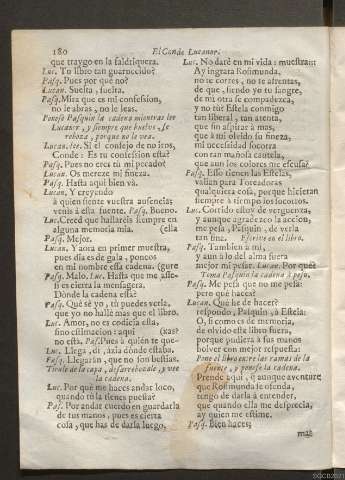 180 El Conde Lucanor.
que traygo en la faldriquera.
Luc. Tu libro tan guarnecido?
Pasq. Pues por què no?
Lucan. Suelta, suelta.
Pasq. Mira que es mi confession,
no le abras, no le leas.
Ponese Pasquin la cadena mientras lee
Lucanor, y siempre que buelve, se
reboza, porque no le vea.
Lucan. lee. Si el consejo de no iros,
Conde: Es tu confession esta?
Pasq. Pues no creà tu mi pecado?
Lucan. Os mereze mi fineza.
Pasq. Hasta aqui bien và.
Lucan. Y creyendo
à quien siente vuestra ausencia;
venis à esta fuente. Pasq. Bueno.
Luc. Creed que hallareis siempre en
alguna memoria mia. (ella
Pasq. Mejor.
Lucan. Y aora en primer muestra,
pues dia es de gala, poneos
en mi nombre esta cadena. (gure
Pasq. Malo. Luc. Hasta que me asse-
si es cierta la mensagera.
Dònde la cadena està?
Pasq. Què sè yo, tù puedes verla,
que yo no hallè mas que el libro.
Luc. Amor, no es codicia esta,
sino estimacion: aqui (xas?
no està. Pasq. Pues à quièn te que-
Luc. Llega, dì, àzia dònde estaba.
Pasq. Llegaràs, que no son bestias.
Tirale de la capa, desarrebozale, y vee
la cadena.
Luc. Por què me haces andar loco,
quando tù la tienes puesta?
Pas. Por andar cuerdo en guardarla
de tus manos, pues es cierta
cosa, que has de darla luego.
Luc. No darè en mi vida: muestra:
Ay ingrata Rosimunda,
no te corres, no te afrentas,
de que, siendo yo tu sangre,
de mi otra se compadezca,
y no tù? Estela conmigo
tan liberal, tan atenta,
que sin aspirar à mas,
que à mi olvido su fineza,
mi necessidad socorra
con tan mañosa cautela,
que aun los colores me escusa?
Pasq. Esso tienen las Estelas,
valian para Toreadoras
qualquiera cosa, porque hicieran
siempre à tiempo los socorros.
Luc. Corrido estoy de verguenza,
y aunque agradezco la accion,
me pesa, Pasquin, de verla
tan fina. Escrive en el libro.
Pasq. Tambien à mi,
y aun à lo del alma fuera
mejor mi pesar. Lucan. Por què?
Toma Pasquin la cadena à peso.
Pasq. Me pesa que no me pesa:
pero què haces?
Lucan. Què he de hacer?
respondo, Pasquin, à Estela:
O, si como es de memoria,
de olvido este libro fuera,
porque pudiera à sus manos
bolver con mejor respuesta!
Pone el libro entre las ramas de la
fuente, y ponese la cadena.
Prende aqui, q̃ aunque aventure
que Rosimunda se ofenda,
tengo de darla à entender,
que quando ella me desprecia,
ay quien me estime.
Pasq. Bien haces;
mas